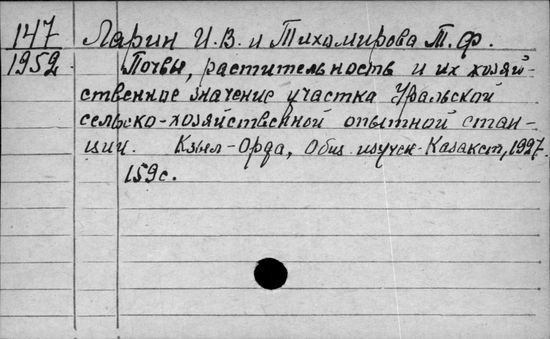 147 Ларин И.В. и Тихомирова М.Ф.
1952 Почвы, растительность и их хозяй-
ственное значение участка Уральской
сельско-хозяйственной опытной стан-
ции. Кзыл-Орда, Общ. изучен. Казакст, 1927.
159 с.